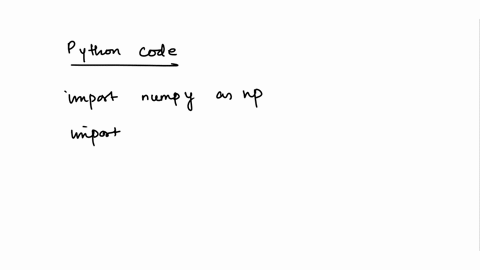 Python code
import numpy as np
import